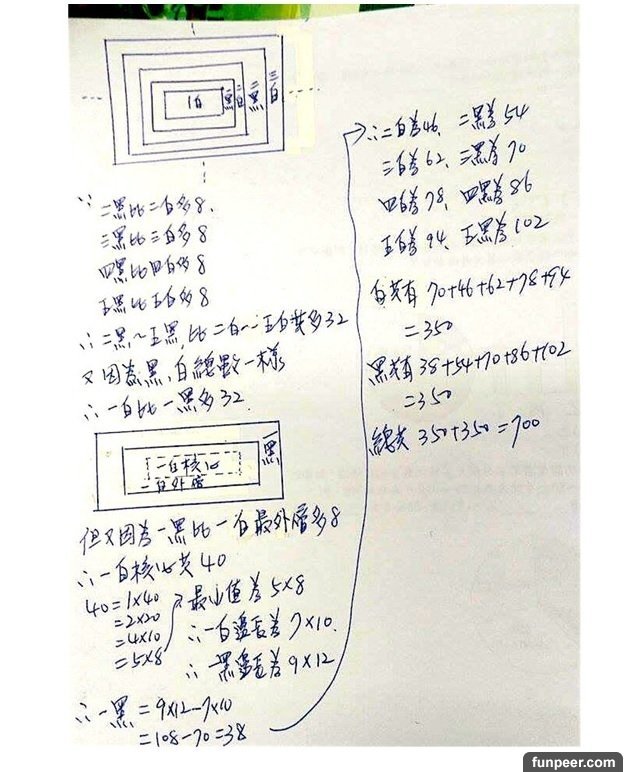 1白
一黑
二白
二黑
三白
∵二黑比二白多8、
三黑比三白多8
四黑比四白多8
五黑比五白多8
∴二黑~五黑,比二白~五白共多32
又因為黑,白總數一樣
∴一白比一黑多32.
一黑
一白核心
一白外層
但又因為一黑比一白最外層多8
∴一白核心共40
40=1×40
=2×20
=4×10
=5×8
最小值為5×8
∴一白邊長為7×10.
∴一黑邊長為9×12
∴一黑=9×12-7×10
=108-70=38
∴二白為46、二黑為54
三白為62、三黑為70
四白為78、四黑為86
五白為94、五黑為102
白共有 70+46+62+78+94
=350
黑共有 38+54+70+86+102
=350
總共 350+350=700
funpeer.com